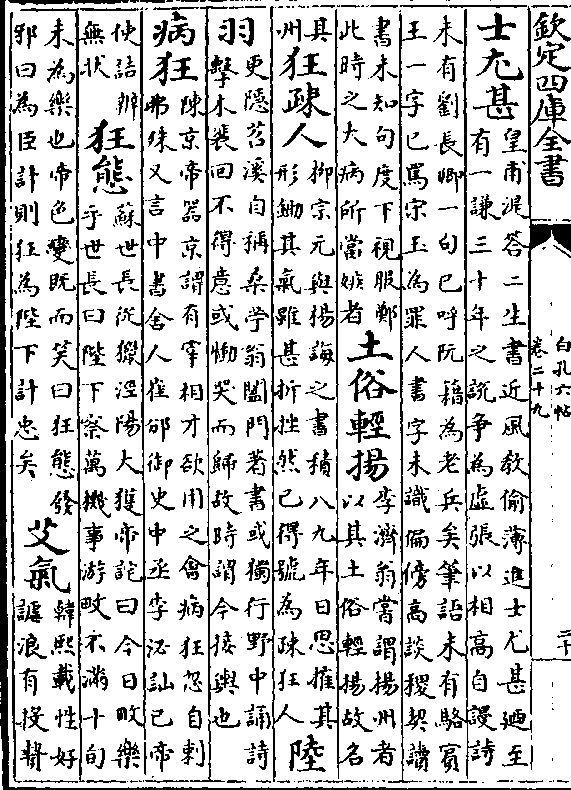 欽定四庫全書
白孔六帖
卷二十九
二十
士尤甚
皇甫湜答二生書近風教偷薄進士尤甚廼至
有一謙三十年之說爭為虛張以相高自謾詩
未有劉長卿一句已呼阮籍為老兵矣筆語未有駱賓
王一字已罵宋玉為罪人書字未識偏傍高談稷契讀
書未知句度下視服鄭
此時之大病所當嫉者
土俗輕揚
李濟翁嘗謂揚州者
以其土俗輕揚故名
其
州
狂疎人
柳宗元與楊誨之書積八九年日思摧其
形鋤其氣雖甚折挫然已得號為疎狂人
陸
羽
更隱苕溪自稱桑苧翁闔門著書或獨行野中誦詩
擊木裴回不得意或慟哭而歸故時謂今接輿也
病狂
陳京帝器京謂有宰相才欲用之會病狂忽自刺
弗殊又言中書舍人崔邠御史中丞李汶訕已帝
使詰辨
無狀
狂態
蘇世長從獵涇陽大獲帝詫曰今日畋樂
乎世長曰陛下察萬機事游畋不滿十旬
未為樂也帝色變既而笑曰狂態發
邪曰為臣計則狂為陛下計忠矣
艾氣
韓熙載性好
謔浪有投贄